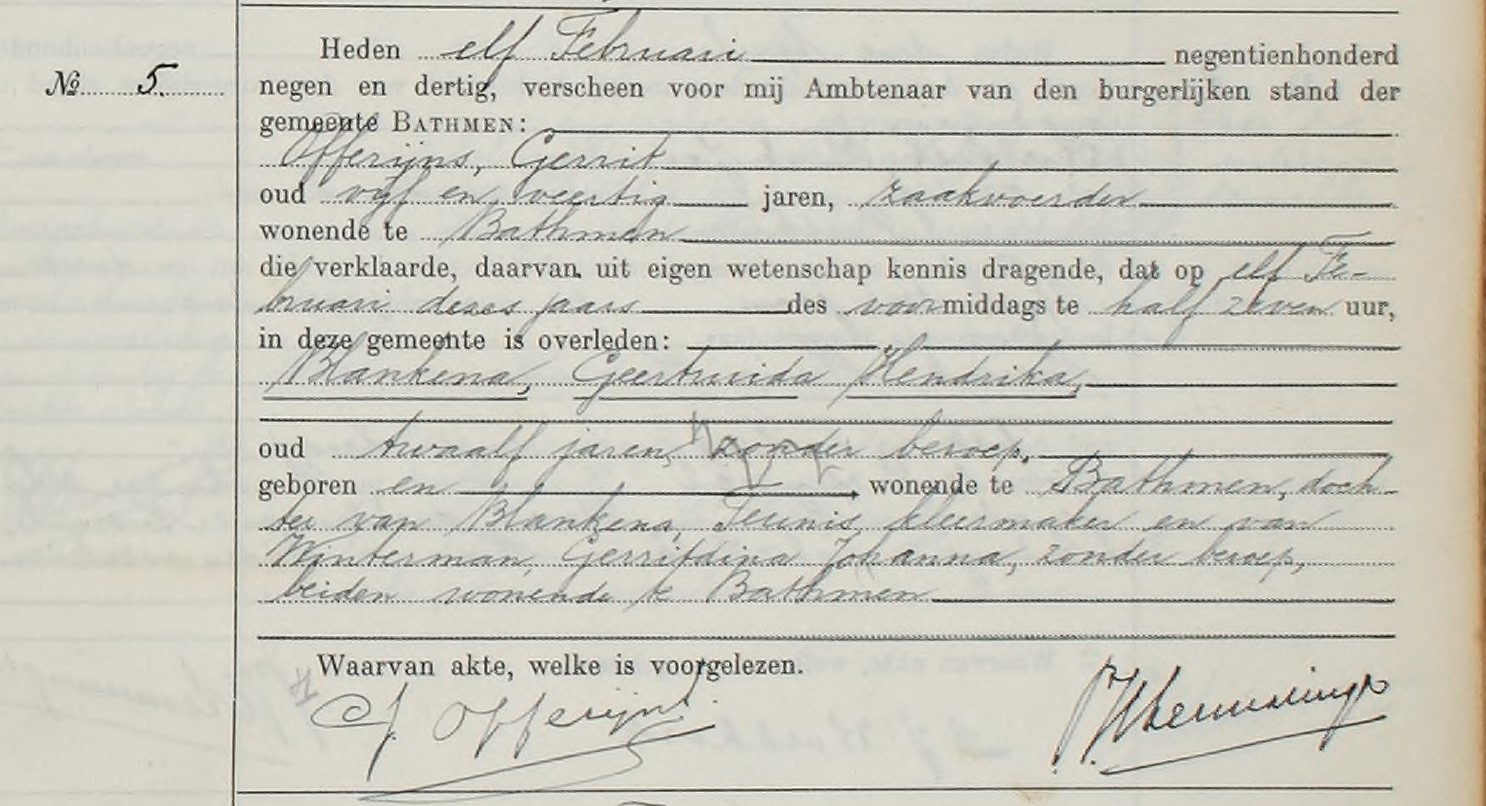 Heden elf Februari negentienhonderd
No 5.
negen en dertig, verscheen voor mij Ambtenaar van den burgerlijken stand der
gemeente BATHMEN:
Offerijns, Gerrit
oud vijf en veertig jaren, zaakvoerder
wonende te Bathmen
die verklaarde, daarvan uit eigen wetenschap kennis dragende, dat op elf Fe-
bruari dezes jaars des voormiddags te half zeven uur,
in deze gemeente is overleden:
Blankena, Geertruida Hendrika,
oud twaalf jaren, zonder beroep,
geboren en wonende te Bathmen, doch-
ter van Blankena, Teunis, kleermaker en van
Winterman, Gerritdina Johanna, zonder beroep,
beiden wonende te Bathmen
Waarvan akte, welke is voorgelezen.
G. Offerijns.